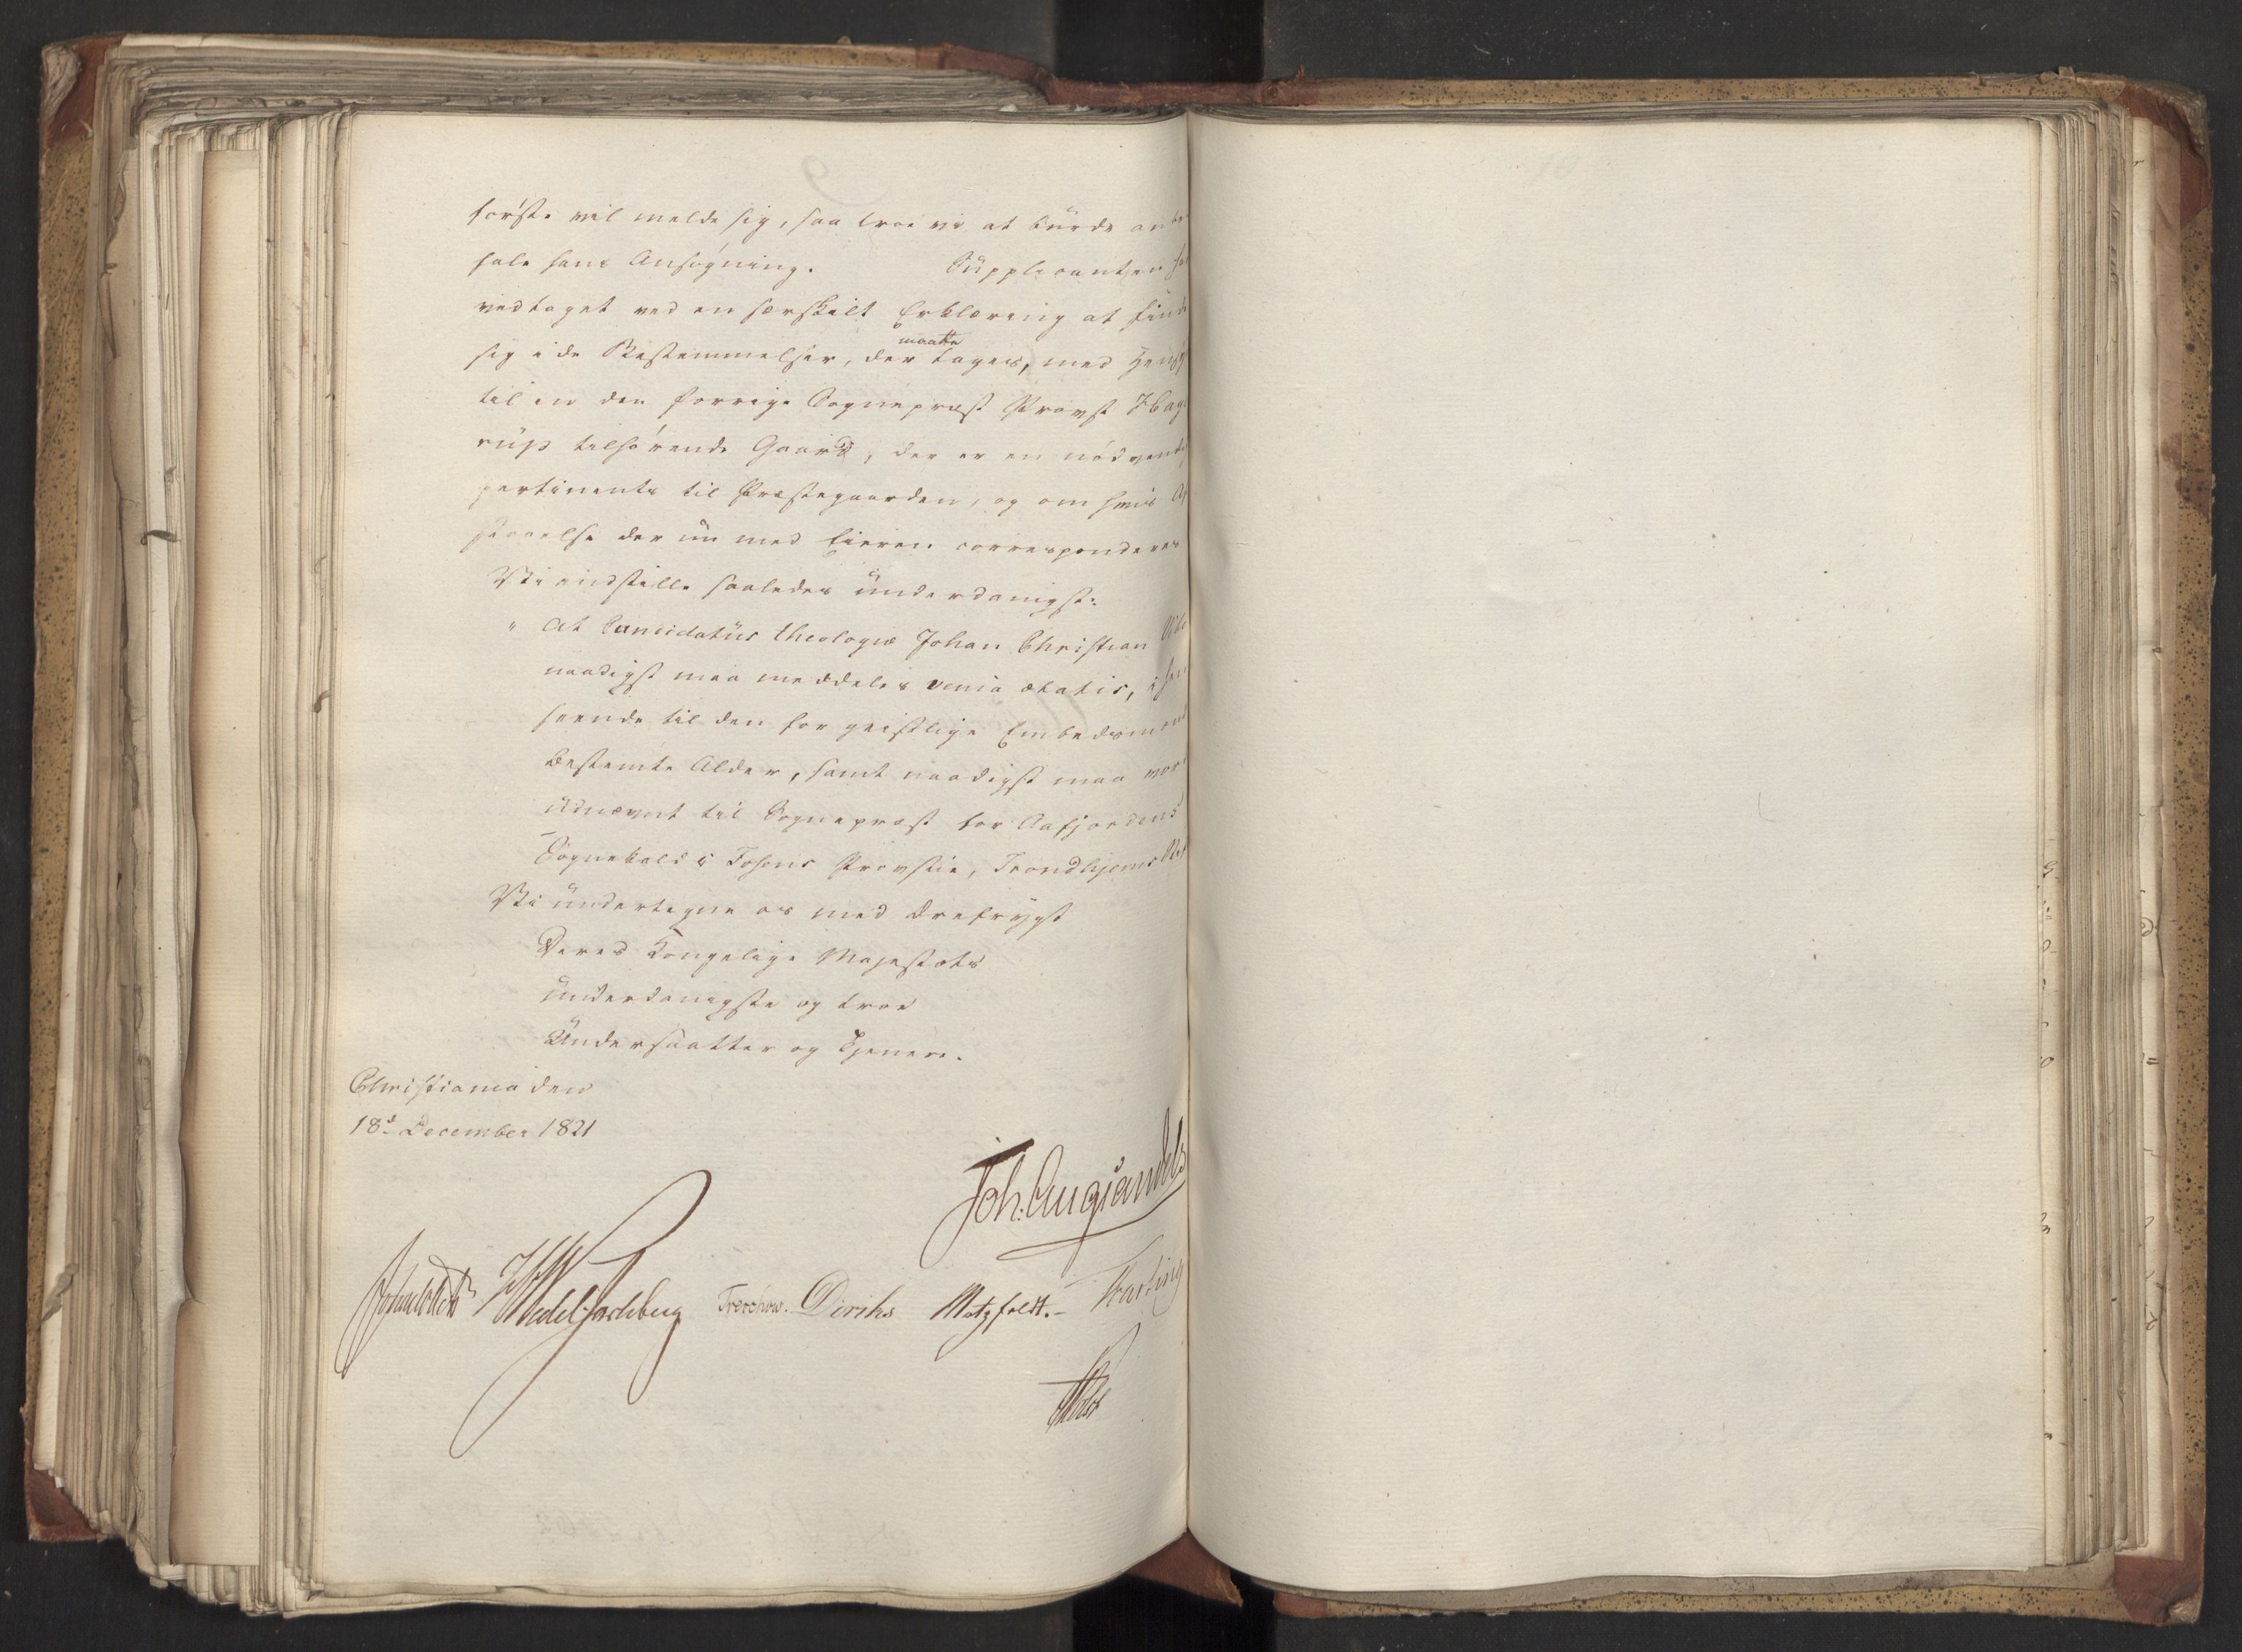 første vil melde sig, saa troe vi at burde anbe
fale hans Ansøgning. Supplicanten ha
vedtaget ved en særskilt Erklæring at finde
sig i de Bestemmelser, der maatte tages, med Hensy
til en den forrige Sognepræst Provst
rups tilhørende Gaard, der er en nødvendig
pertinents til Præstegaarden, og om hvis Af
staaelse der nu med Eieren corresponderes
Vi indstille saaledes underdanigst:
" At Candidatus theologiæ Johan Christian
naadigst maa meddeles venia ætatis, i Hen
seende til den for geistlige Embedsmænd
bestemte Alder, samt naadigst maa vor
udnævnt til Sognepræst for Aafjordens
Sognekald i Fosens Provstie, Trondhjems Stif
Vi undertegne os med Ærefrygt
Deres Kongelige Majestæts
underdanigste og troe
Undersaatter og Tjenere.
Christiania den
18d December 1821
Joh: Aug Sandels
Wedel Jarlsberg Treschow. Diriks Motzfeldt.